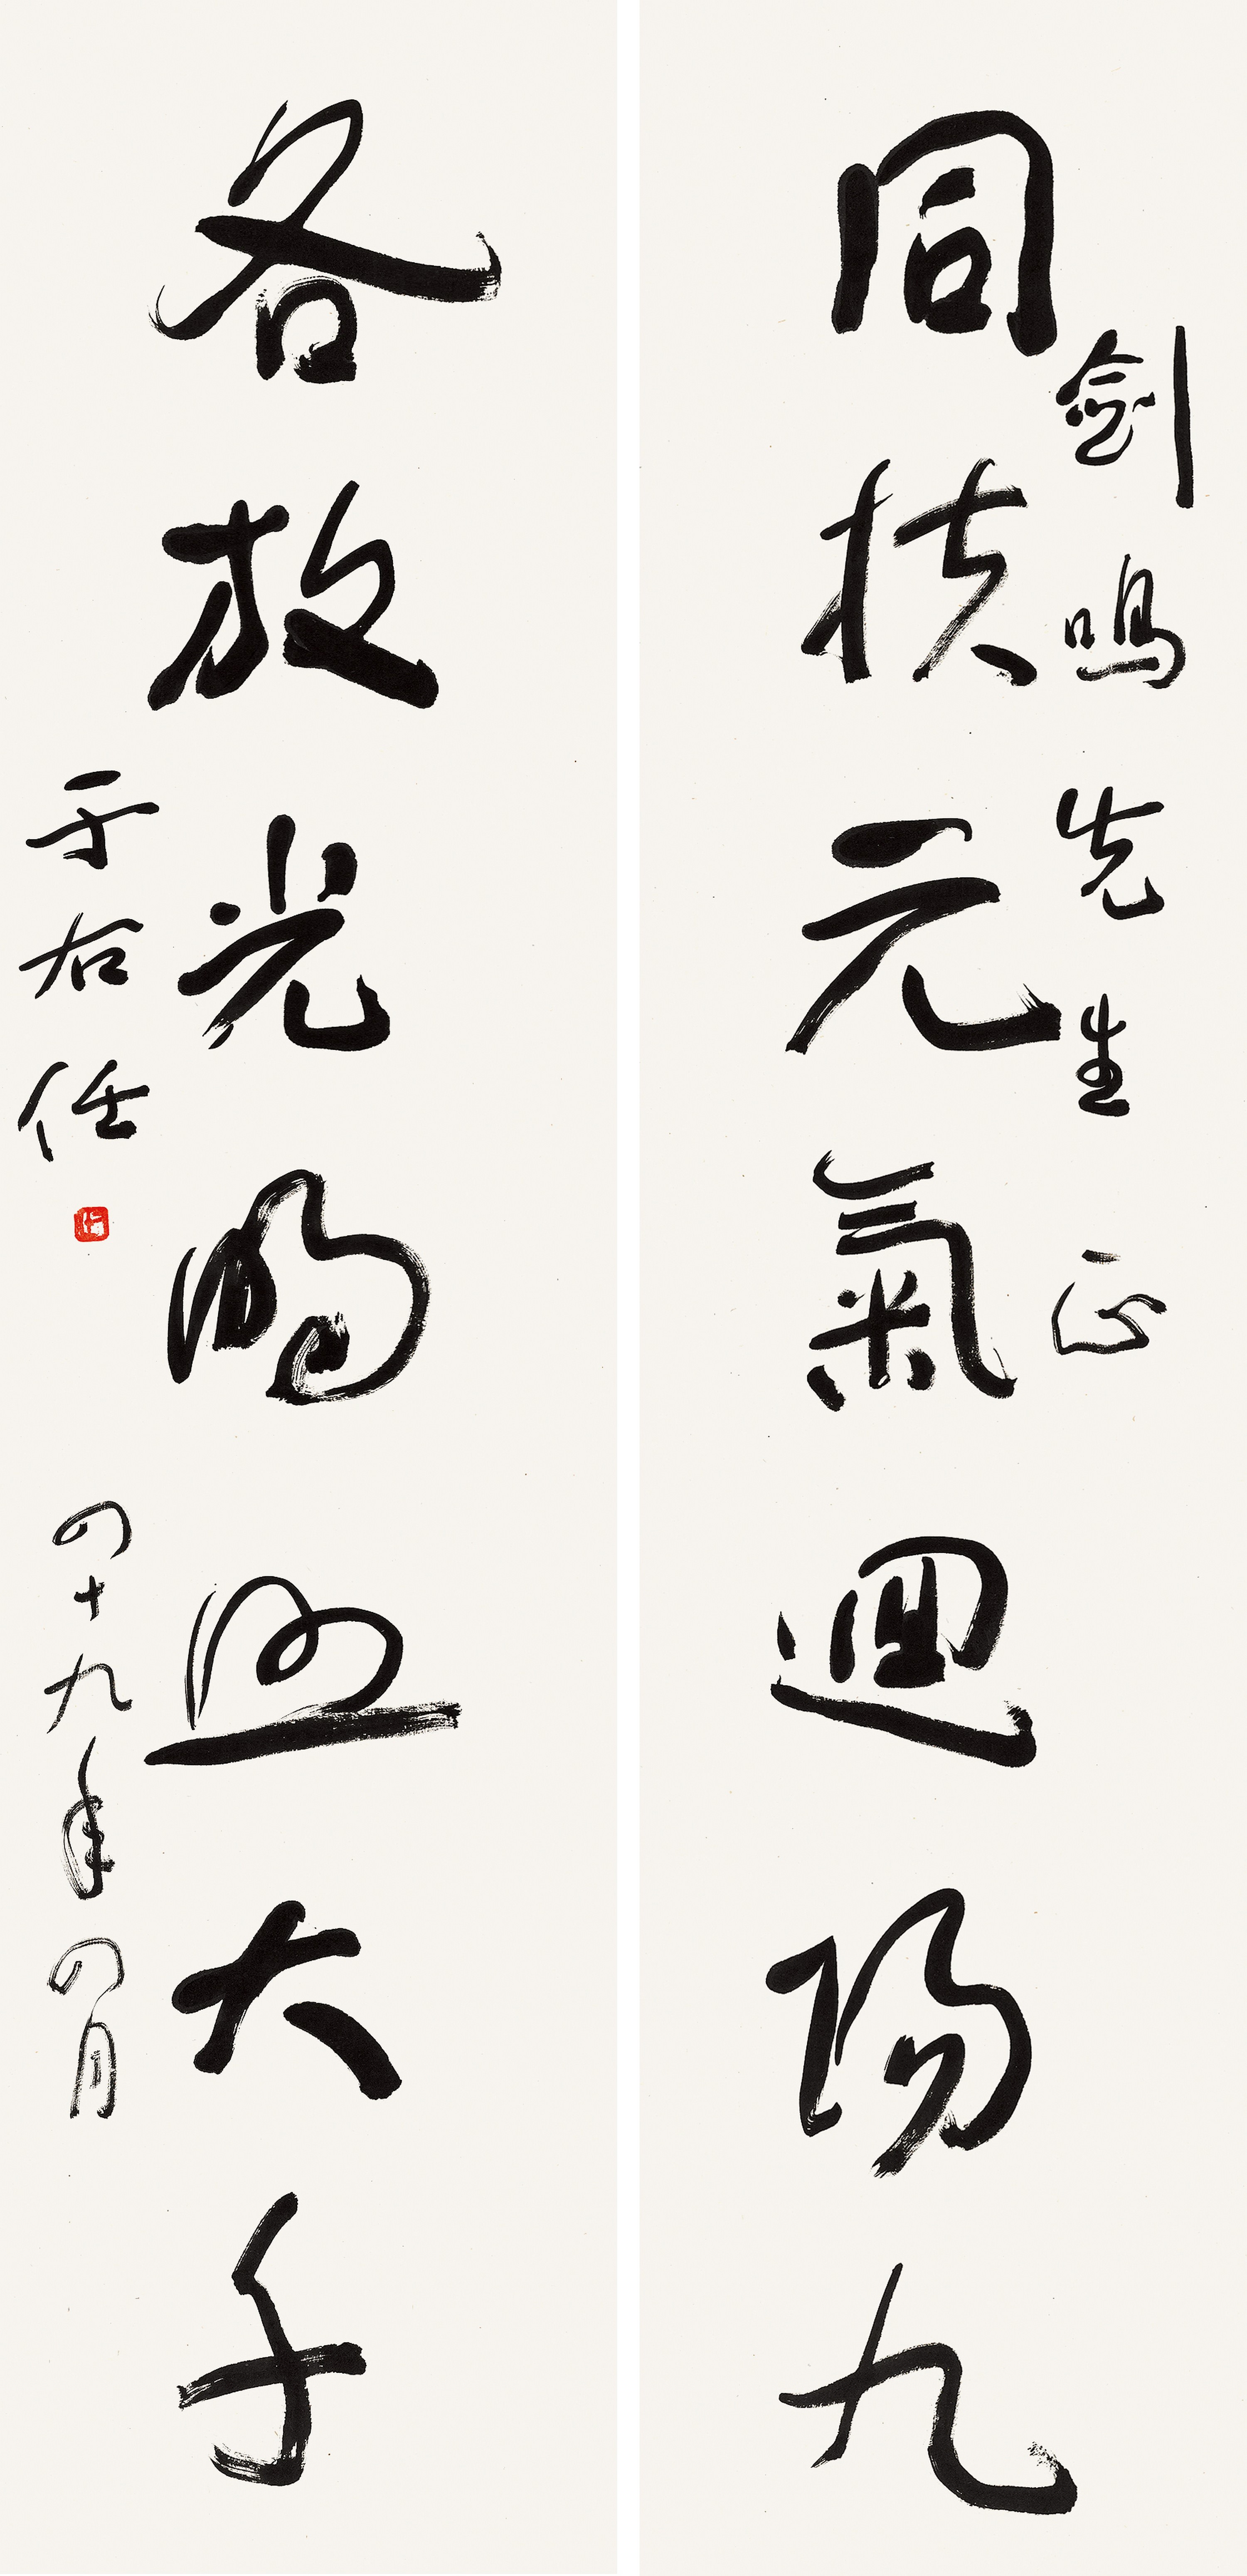 同扶元氣迴陽九
劍鳴先生正
各放光明照大千
于右任
四十九年四月